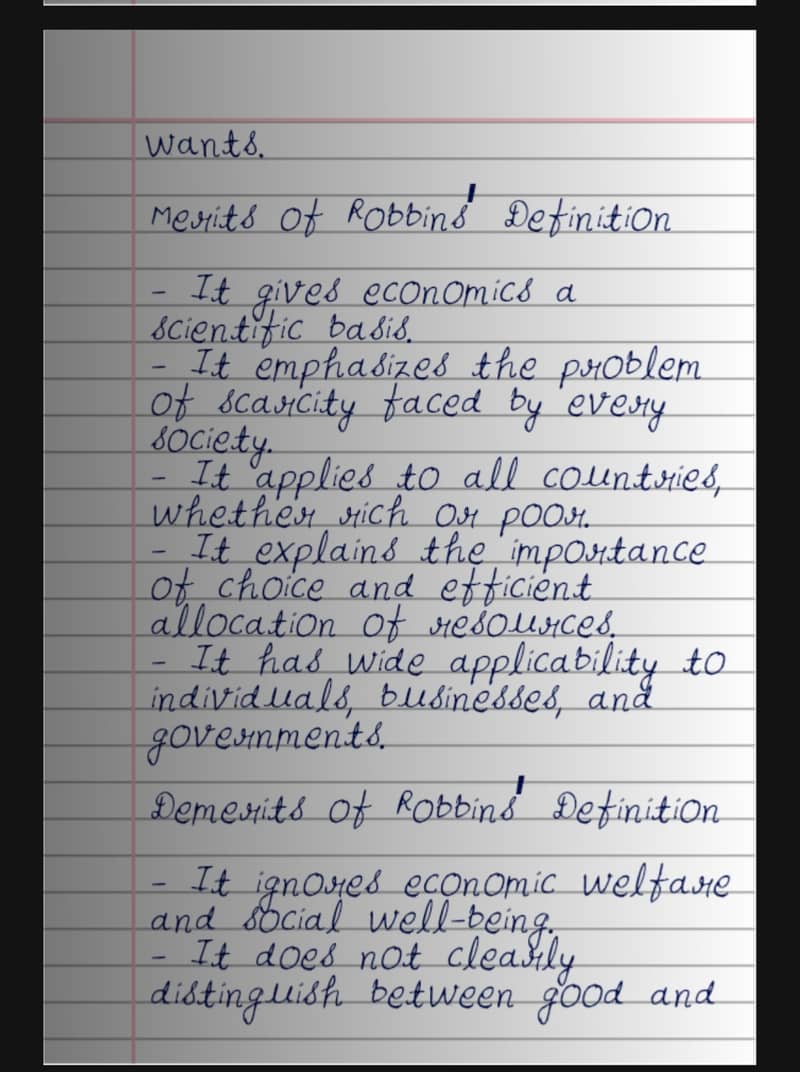 Wants.
Merits of Robbins' Definition
- It gives economics a
scientific basis.
- It emphasizes the problem
of scarcity faced by every
society.
- It applies to all countries,
whether rich or poor.
- It explains the importance
of choice and efficient
allocation of resources.
- It has wide applicability to
individuals, businesses, and
governments.
Demerits of Robbins' Definition
- It ignores economic welfare
and social well-being.
- It does not clearly
distinguish between good and